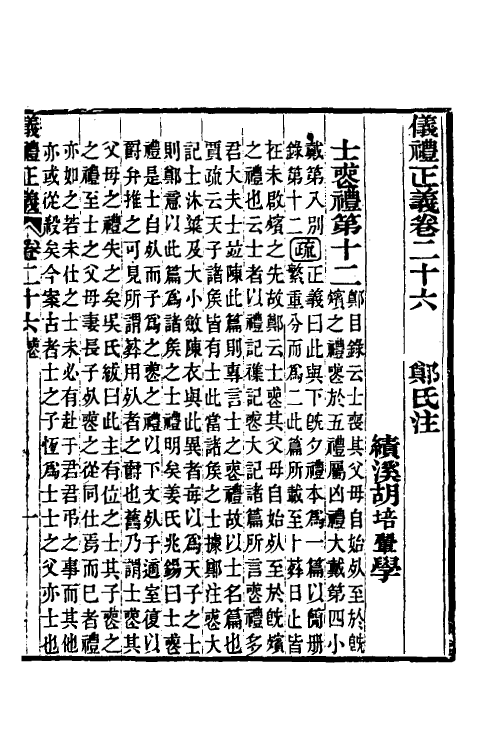 儀禮正義卷二十六　　鄭氏注
績溪胡培翬學
士喪禮第十二
鄭目錄云士喪其父母自始死至於旣
殯之禮喪於五禮屬凶禮大戴第四小
戴第八別
錄第十二
疏
正義曰此與下旣夕禮本爲一篇以簡册
繁重分而爲二此篇所載至卜葬日止皆
在未啟殯之先故鄭云士喪其父母自始死至於旣殯
之禮也云士者以禮記雜記喪大記諸篇所言喪禮多
君大夫士竝陳此篇則專言士之喪禮故以士名篇也
賈疏云天子諸矦皆有士此當諸矦之士據鄭注喪大
記士沐粱及大小斂陳衣與此異者每以爲天子之士
則鄭意以此篇爲諸矦之士禮明矣姜氏兆錫曰士喪
禮是士自死而子爲之喪之禮以下文死于適室復以
爵弁推之可見所謂葬用死者之爵也舊乃謂士喪其
父母之禮失之矣吳氏紱曰此主有位之士其子喪之
之禮至士之父母妻長子死喪之從同仕焉而已者禮
亦如之若未仕之士未必有赴于君君弔之事而其他
亦或從殺矣今案古者士之子恆爲士士之父亦士也
儀禮正義　卷二十六　喪